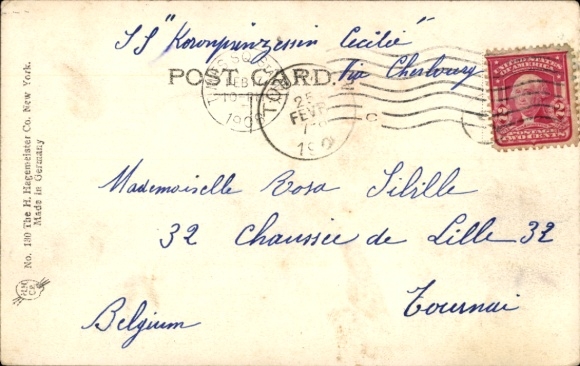 SS "Kronprinzessin Cecilie"
via Cherbourg
POST CARD.
TIMES SQ.
FEB
190
TOURNAI
25
FEVR
190
C
UNITED STATES
OF AMERICA
2 2
POSTAGE
TWO CENTS
Mademoiselle Rosa Sibille
32 Chaussée de Lille 32
Tournai
Belgium
No. 130 The H. Hagemeister Co. New York.
Made in Germany